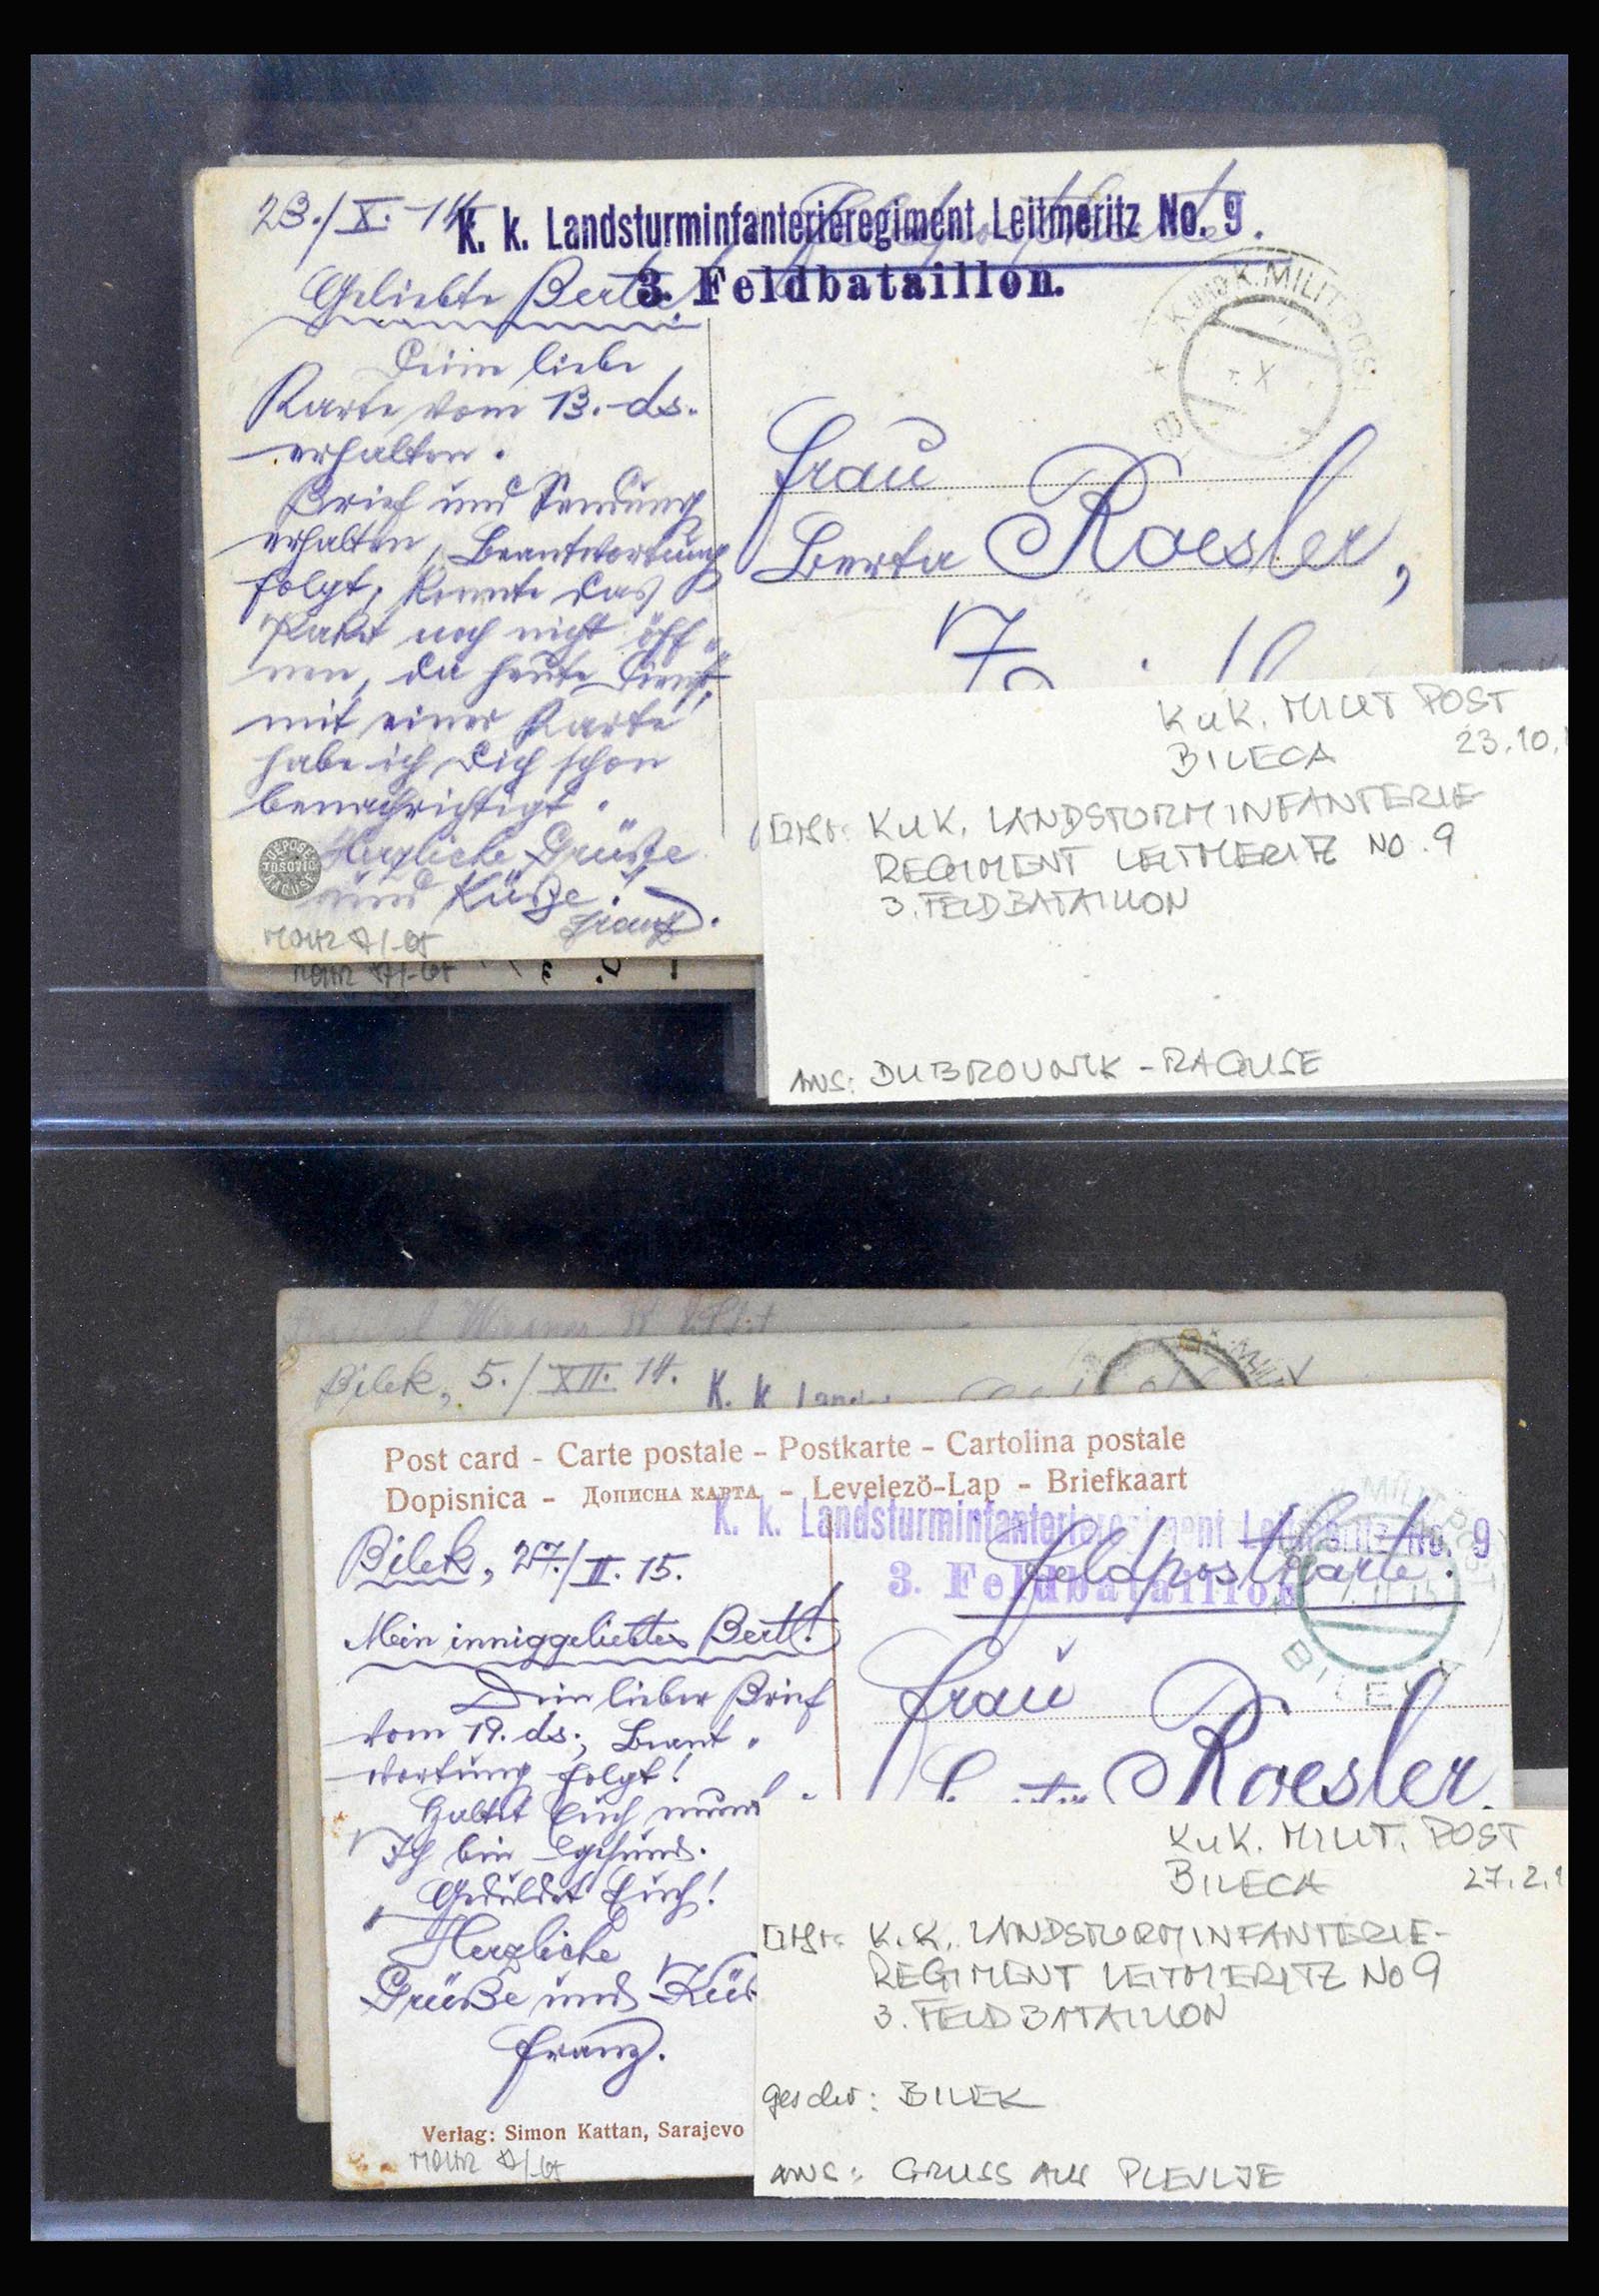 23./X.-14
Feldpostkarte.
K. k. Landsturminfanterieregiment Leitmeritz No. 9.
3. Feldbataillon.
K. UND K. MILIT. POST
B
X
Geliebte Berta!
Deine liebe
Karte vom 13.-ds.
erhalten.
Brief und Sendung
erhalten, Beantwortung
folgt, konnte das
Paket noch nicht öff-
nen, da heute Dienst,
mit einer Karte
habe ich Dich schon
benachrichtigt.
Herzliche Grüße
und Küsse!
Franz.
Frau
Berta Roesler,
DÉPOSÉ
TOSOVIĆ
RAGUSE
KuK. MILIT POST
BILECA 23.10.1
KuK. LANDSTURMINFANTERIE
REGIMENT LEITMERITZ NO. 9
3. FELDBATAILLON
ANS: DUBROVNIK - RAGUSE
Bilek, 5./XII. 14.
K. k. Land
Post card - Carte postale - Postkarte - Cartolina postale
Dopisnica - Дописна карта - Levelező-Lap - Briefkaart
K. k. Landsturminfanterieregiment Leitmeritz No. 9
3. Feldbataillon
Feldpostkarte.
MILIT. POST
BILEĆA
Bilek, 27./II. 15.
Mein inniggeliebtes Bertl!
Dein lieber Brief
vom 19. ds., Beant-
wortung folgt!
Haltet Euch
Ich bin gesund.
Geduldet Euch!
Herzliche
Grüße und Küs
Franz.
Frau
Roesler,
Verlag: Simon Kattan, Sarajevo
KuK. MILIT. POST
BILECA 27.2.1
K.K. LANDSTURMINFANTERIE-
REGIMENT LEITMERITZ No 9
3. FELDBATAILLON
geschr: BILEK
ANS: GRUSS AUS PLEVLJE